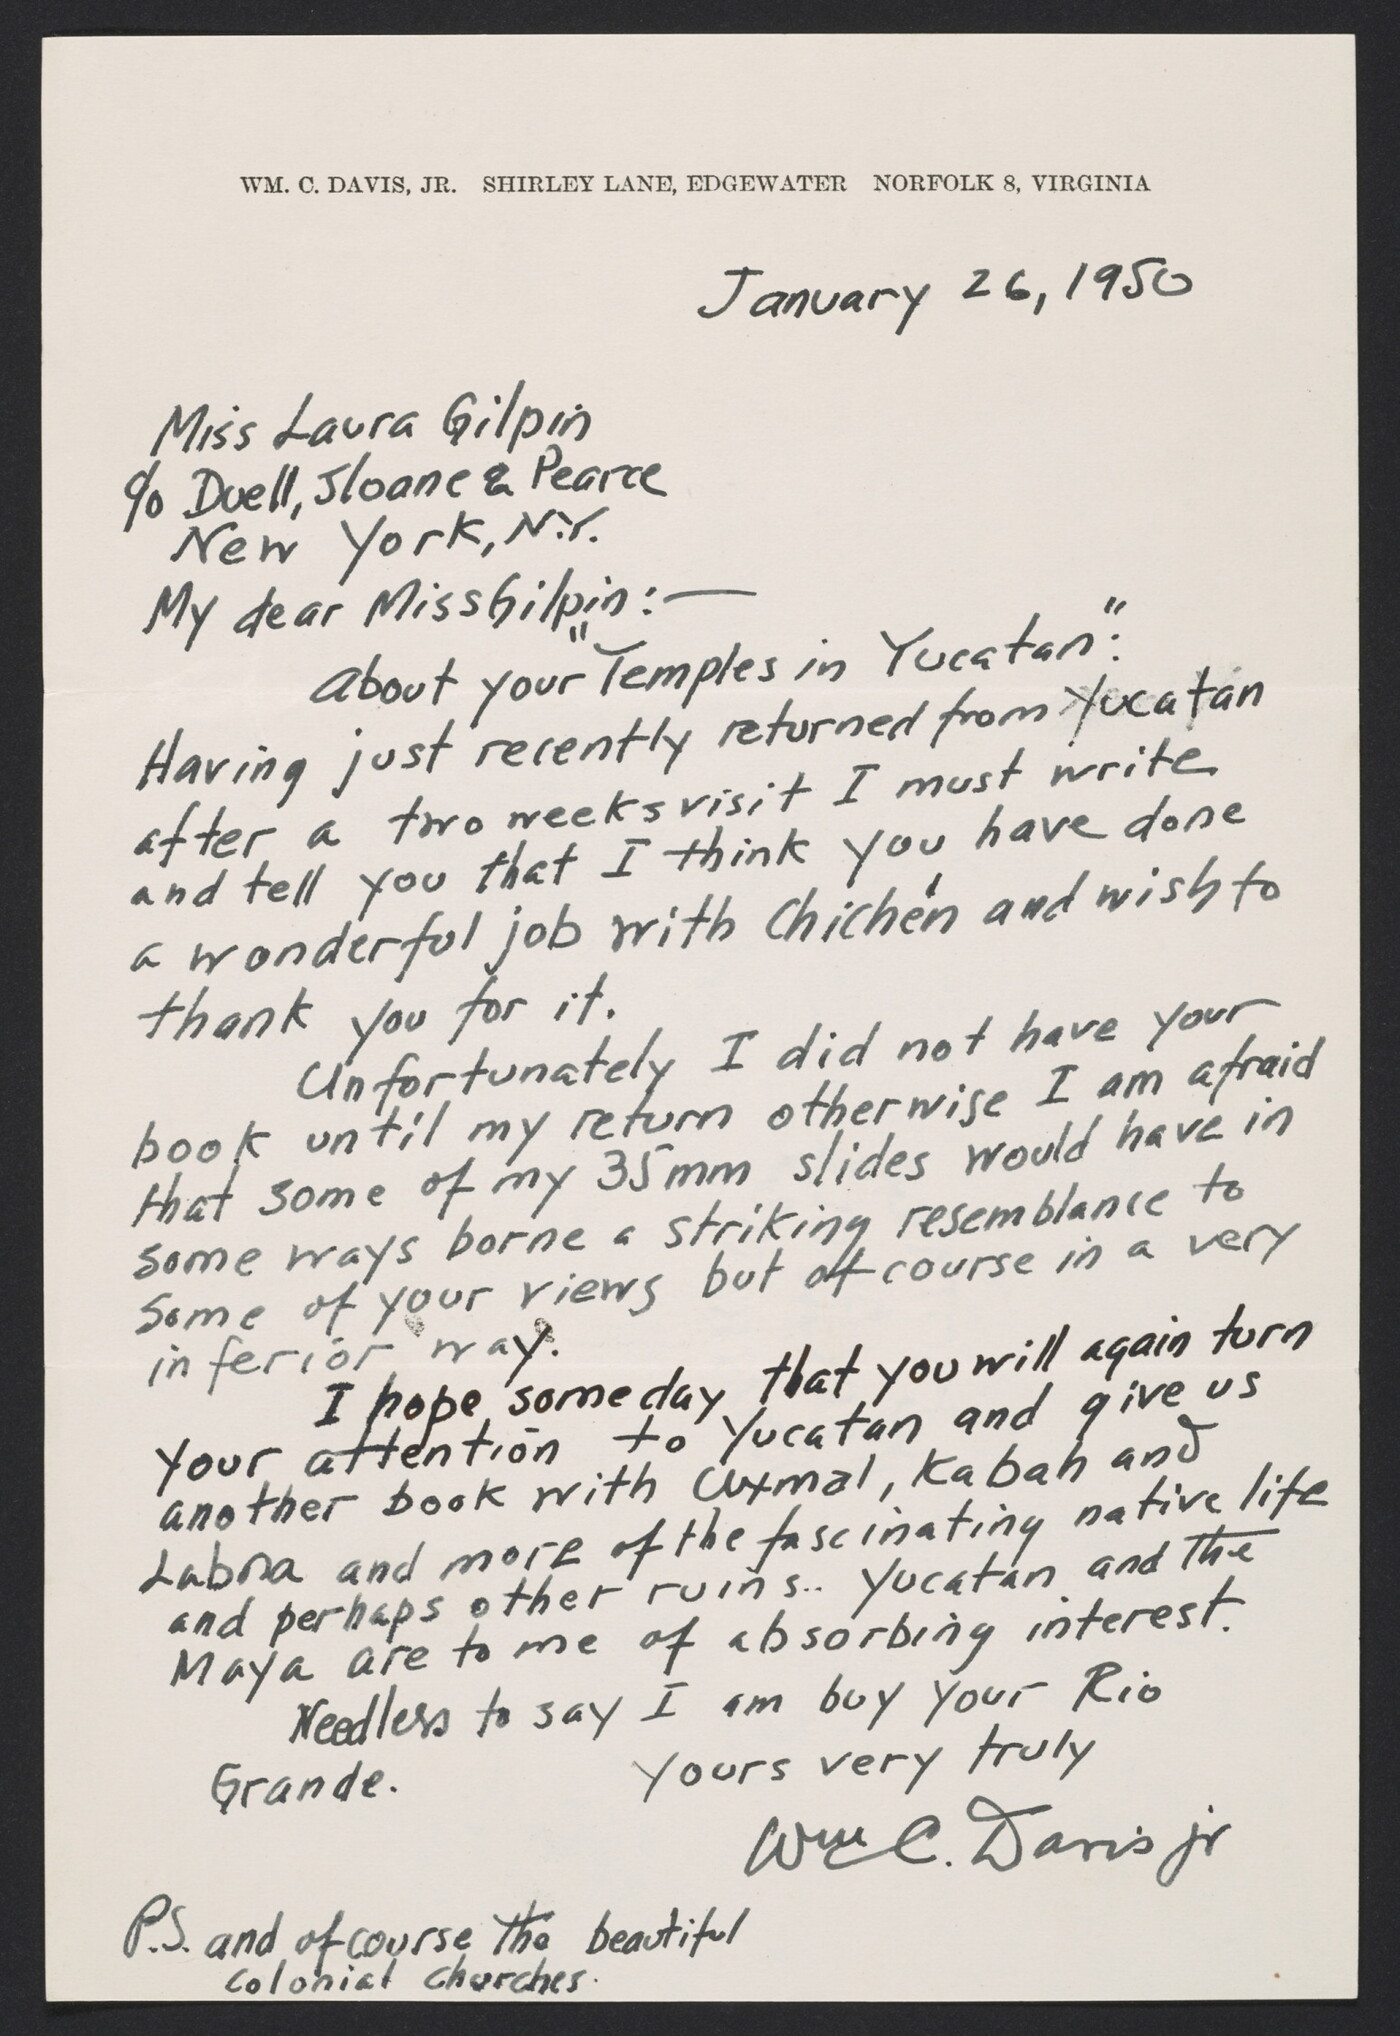 WM. C. DAVIS, JR. SHIRLEY LANE, EDGEWATER NORFOLK 8, VIRGINIA
January 26, 1950
Miss Laura Gilpin
c/o Duell, Sloane & Pearce
New York, N.Y.
My dear Miss Gilpin:—
About your "Temples in Yucatan":
Having just recently returned from Yucatan
after a two weeks visit I must write
and tell you that I think you have done
a wonderful job with Chichén and wish to
thank you for it.
Unfortunately I did not have your
book until my return otherwise I am afraid
that some of my 35mm slides would have in
some ways borne a striking resemblance to
some of your views but of course in a very
inferior way.
I hope someday that you will again turn
your attention to Yucatan and give us
another book with Uxmal, Kabah and
Labna and more of the fascinating native life
and perhaps other ruins.. Yucatan and the
Maya are to me of absorbing interest.
Needless to say I am buy your Rio
Grande.
Yours very truly
Wm C. Davis jr
P.S. and of course the beautiful
colonial churches.